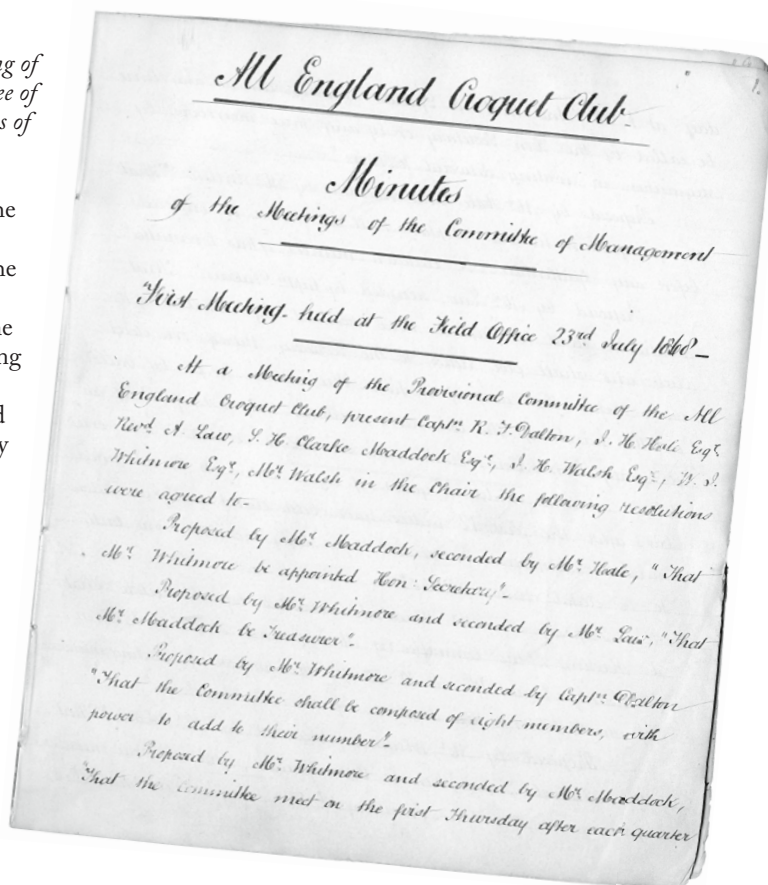 ng of
ee of
s of
ne
ne
ne
ng
d
y
1.
All England Croquet Club
Minutes
of the Meetings of the Committee of Management
"First Meeting held at the Field Office 23rd July 1868 –
At a Meeting of the Provisional Committee of the All
England Croquet Club, present Captn R. F. Dalton, J. H. Hale Esqr,
Revd A. Law, S. H. Clarke Maddock Esqr, J. H. Walsh Esqr, W. J.
Whitmore Esqr, Mr. Walsh in the Chair the following resolutions
were agreed to –
Proposed by Mr. Maddock, seconded by Mr. Hale, "That
Mr. Whitmore be appointed Hon: Secretary" –
Proposed by Mr. Whitmore and seconded by Mr. Law, "That
Mr. Maddock be Treasurer" –
Proposed by Mr. Whitmore and seconded by Captn Dalton
"That the Committee shall be composed of eight members, with
power to add to their number" –
Proposed by Mr. Whitmore and seconded by Mr. Maddock,
"That the Committee meet on the first Thursday after each quarter